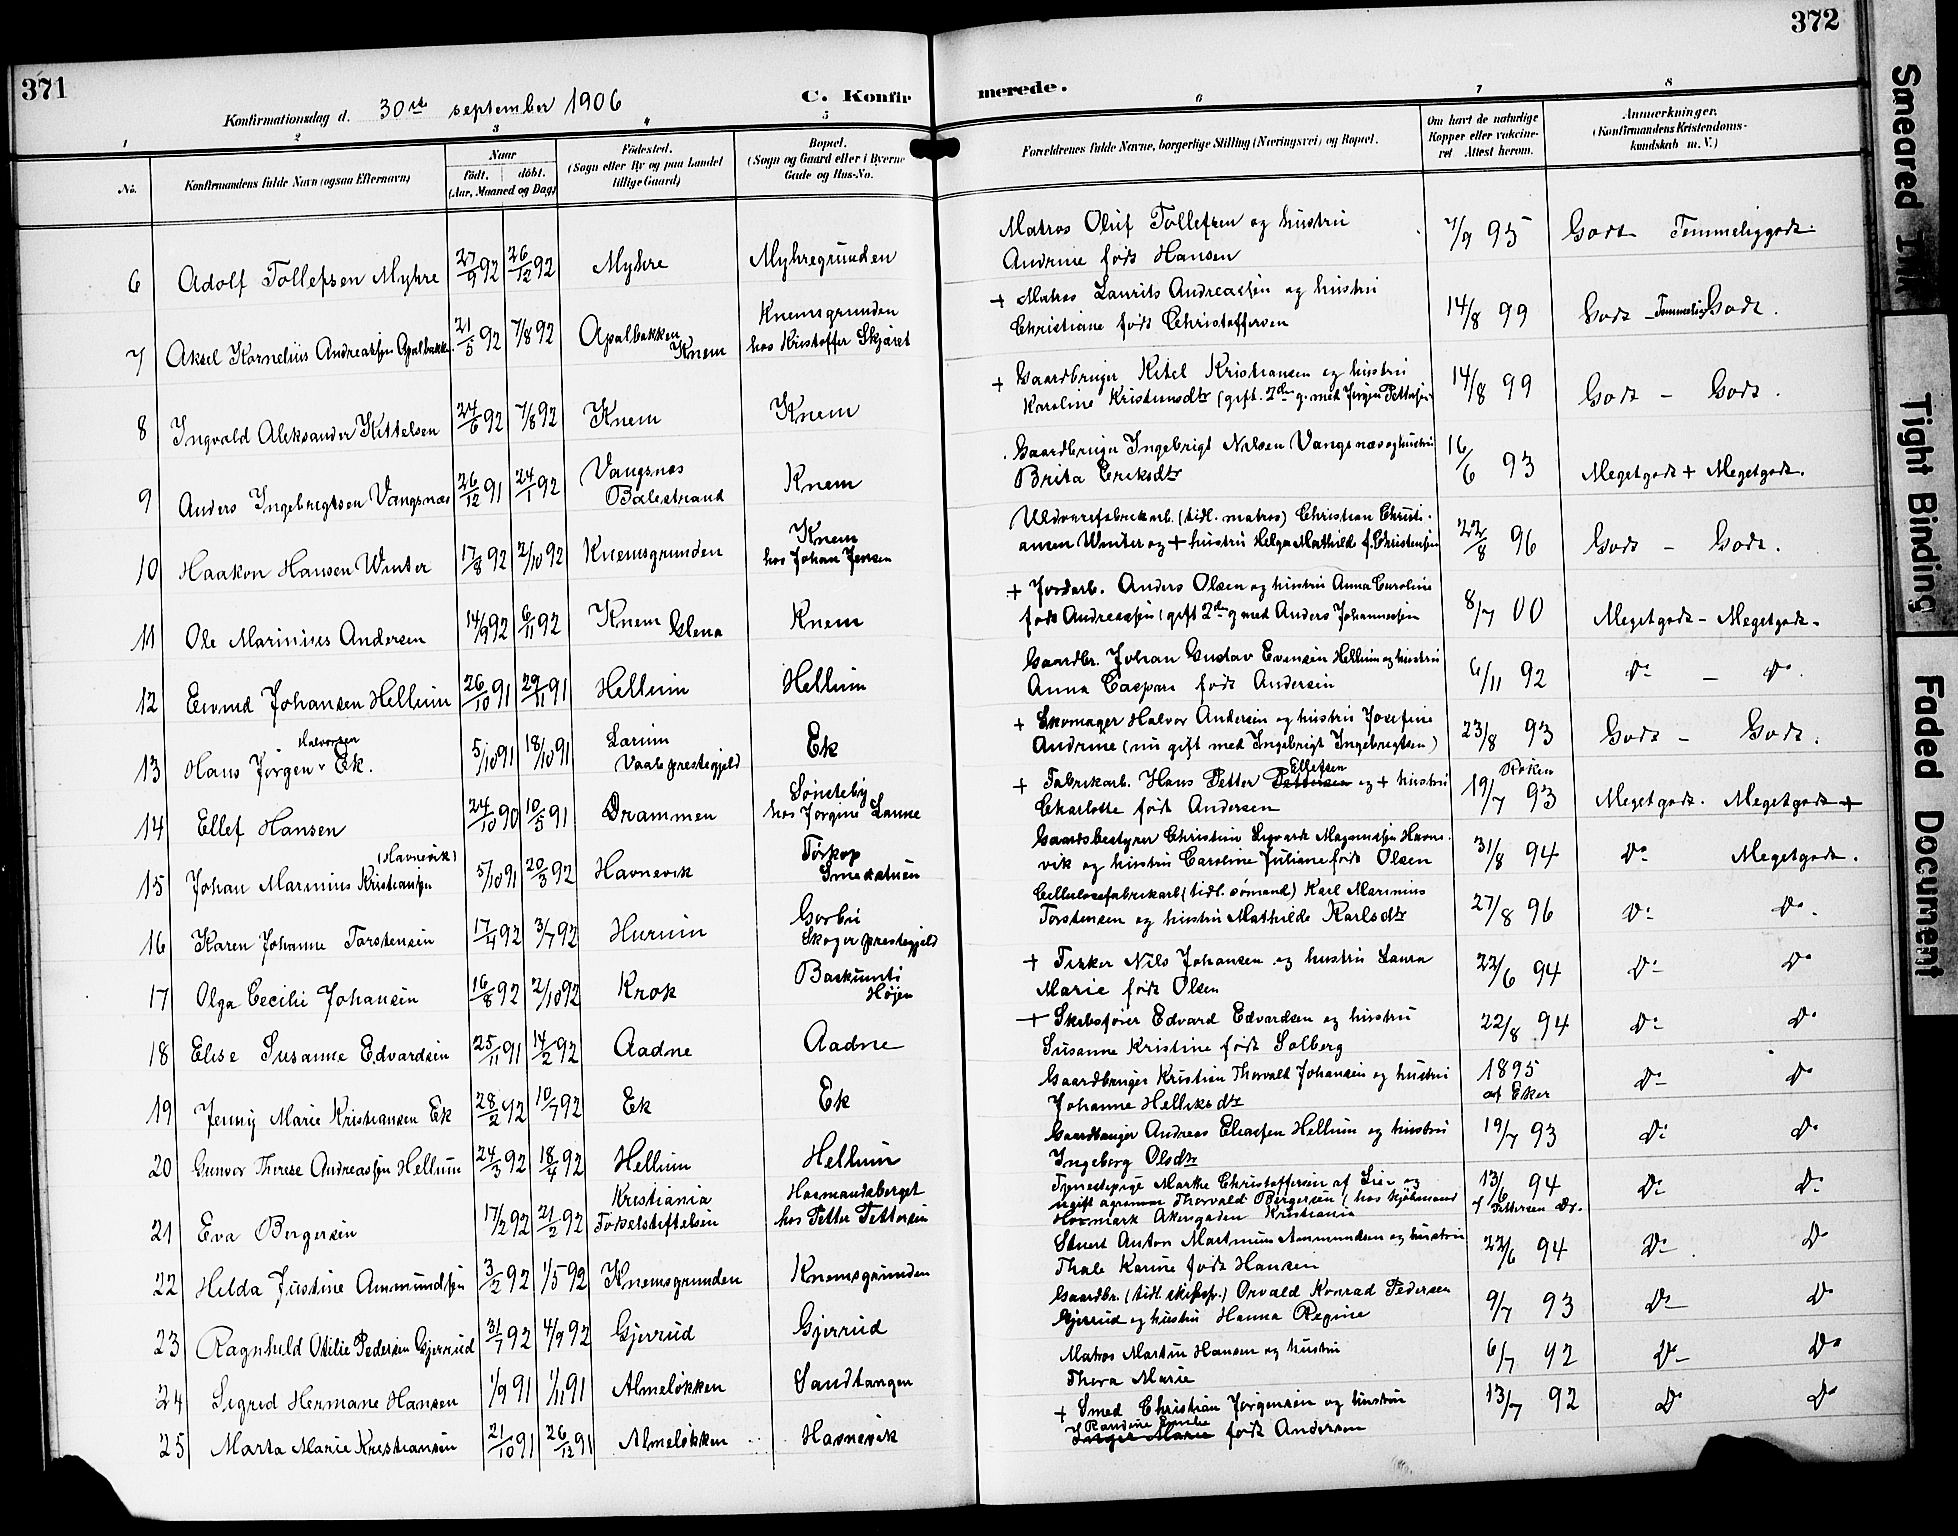 371
372
Konfirmationsdag d. 30te september 1906
C. Konfir
merede.
1 2 3 4 5 6 7 8
No.
Konfirmandens fulde Navn (ogsaa Efternavn)
Naar
født. døbt.
(Aar, Maaned og Dag)
Fødested.
(Sogn eller By og paa Landet
tillige Gaard)
Bopæl.
(Sogn og Gaard eller i Byerne
Gade og Hus-No.
Forældrenes fulde Navne, borgerlige Stilling (Næringsvei) og Bopæl.
Om havt de naturlige
Kopper eller vakcine-
ret Attest herom.
Anmærkninger.
(Konfirmandens Kristendoms-
kundskab m. V.)
6 Adolf Tollefsen Myhre 27/9 92 26/12 92 Myhre Myhregrunden
Matros Oluf Tollefsen og hustru 7/9 95 Godt Temmeliggodt.
Andrine født Hansen
7 Aksel Kornelius Andreassen Apalbakken 21/5 92 7/8 92 Apalbakken Knem
Knemsgrunden
hos Kristoffer Skjæret
+ Matros Laurits Andreassen og hustru 14/8 99 Godt - Temmelig Godt.
Christiane født Christoffersen
8 Ingvald Aleksander Kittelsen 24/6 92 7/8 92 Knem Knem
+ Gaardbruger Kitel Kristiansen og hustru 14/8 99 Godt - Godt.
Karoline Kristensdtr (gift. 2den g. med Jørgen Pettersen
9 Anders Ingebrigtsen Vangsnæs 26/12 91 24/1 92 Vangsnæs
Balestrand
Knem
Gaardbruger Ingebrigt Nilsen Vangsnæs og hustru 16/6 93 Megetgodt + Megetgodt.
Brita Eriksdtr
10 Haakon Hansen Winter 17/8 92 2/10 92 Knemsgrunden Knem
hos Johan Jensen
Uldvarefabrikarb. (tidl. matros) Christian Christi- 22/8 96 Godt - Godt.
ansen Winter og + hustru Helga Mathilde f. Christensen
11 Ole Marinius Andersen 14/9 92 6/11 92 Knem Glena Knem
+ Jordarb. Anders Olsen og hustru Anna Caroline 8/7 00 Megetgodt - Megetgodt.
født Andreassen (gift 2den g med Anders Johannessen
12 Eivind Johansen Hellum 26/10 91 29/11 91 Hellum Hellum
Gaardbr. Johan Gustav Evensen Hellum og hustru 6/11 92 Do - Do.
Anna Caspara født Andersen
13 Hans Jørgen Halvorsen Ek. 5/10 91 18/10 91 Larum
Vaale prestegjeld
Ek
+ Skomager Halvor Andersen og hustru Josefine 23/8 93 Godt - Godt.
Andrine (nu gift med Ingebrigt Ingebrigtsen)
14 Ellef Hansen 24/10 90 10/5 91 Drammen Sønsteby
hos Jørgine Lanne
+ Fabrikarb. Hans Petter Pettersen Ellefsen og + hustru 19/7 93 Røken Megetgodt. Megetgodt +
Charlotte født Andersen
15 Johan Marinius Kristiansen (Havnevik) 5/10 91 20/3 92 Havnevik Tørkop
Smedstuen
Gaardsbestyrer Christian Sigvardt Magnussen Havne- 31/8 94 Do Megetgodt.
vik og hustru Caroline Juliane født Olsen
16 Karen Johanne Torstensen 17/4 92 3/7 92 Hurum Gorbu
Skoger prestegjeld
Cellulosefabrikarb (tidl. sømand) Karl Marinius 27/8 96 Do Do.
Torstensen og hustru Mathilde Karlsdtr
17 Olga Cecilie Johansen 16/8 92 2/10 92 Krok
Højen
+ Fisker Nils Johansen og hustru Laura 22/6 94 Do Do
Marie født Olsen
18 Elise Susanne Edvardsen 25/11 91 14/2 92 Aadne Aadne
+ Skibsfører Edvard Edvardsen og hustru 22/8 94 Do Do
Susanne Kristine født Solberg
19 Jenny Marie Kristiansen Ek 28/2 92 10/7 92 Ek Ek
Gaardbruger Kristian Thorvald Johansen og hustru 1895 Do Do
Johanne Helliksdtr af Eker
20 Gunvor Therese Andreassen Hellum 24/3 92 18/4 92 Hellum Hellum
Gaardbruger Andreas Eliassen Hellum og hustru 19/7 93 Do Do
Ingeborg Olsdtr
21 Eva Bergersen 17/2 92 21/2 92 Kristiania
Fødselstiftelsen
Hasmandsberget
hos Petter Pettersen
Tjenestepige Marthe Christoffersen af Lier og 13/6 94 Do Do
ugift agronom Thorvald Bergersen (hos kjøbmand f Pettersen Dr.
Hovmark Akersgaden Kristiania
22 Helda Justine Ammundsen 3/2 92 1/5 92 Knemsgrunden Knemsgrunden
Stuert Anton Martinius Ammundsen og hustru 22/6 94 Do Do
Thale Karine født Hansen
23 Ragnhild Otilie Pedersen Gjerrud 31/7 92 4/9 92 Gjerrud Gjerrud
Gaardbr. (tidl. skibsf.) Orvald Konrad Pedersen 9/7 93 Do Do
Gjerrud og hustru Hanna Regine
24 Sigrid Hermane Hansen 1/9 91 1/11 91 Almeløkken Sandtangen
Matros Martin Hansen og hustru 6/7 92 Do Do
Thora Marie
25 Marta Marie Kristiansen 21/10 91 26/12 91 Almeløkken Havnevik
+ Smed Christian Jørgensen og hustru 13/7 92 Do Do
Inger Marie født Andersen
Smeared Ink
Tight Binding
Faded Document